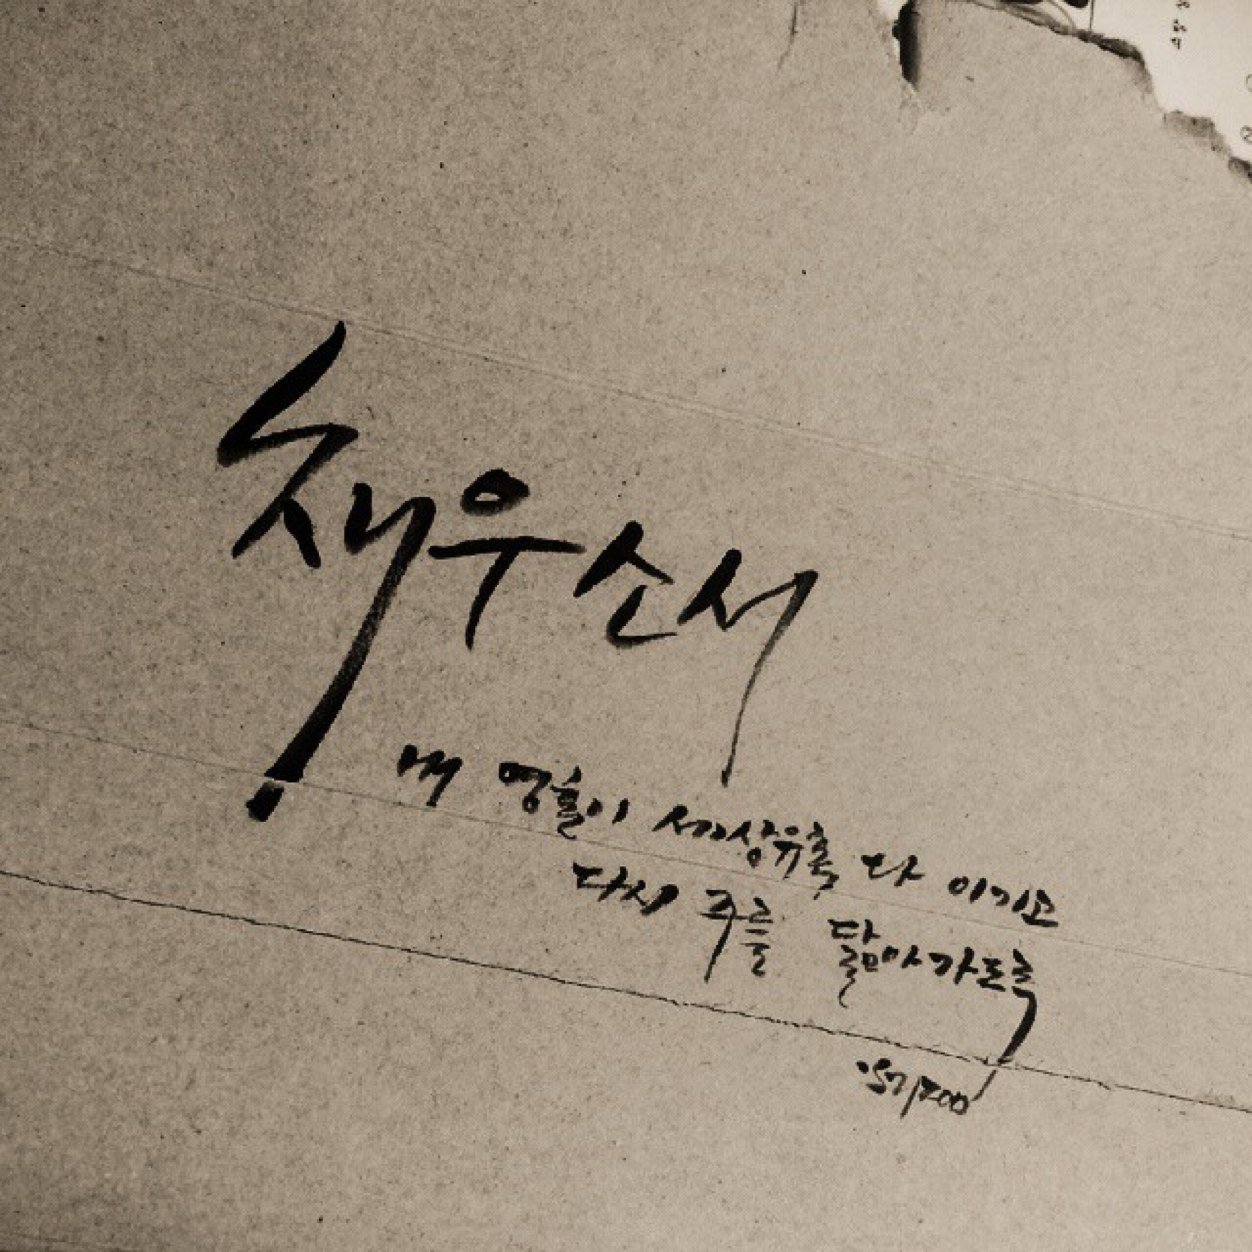 채우소서
내 영혼이 세상유혹 다 이기고
다시 주를 닮아가도록